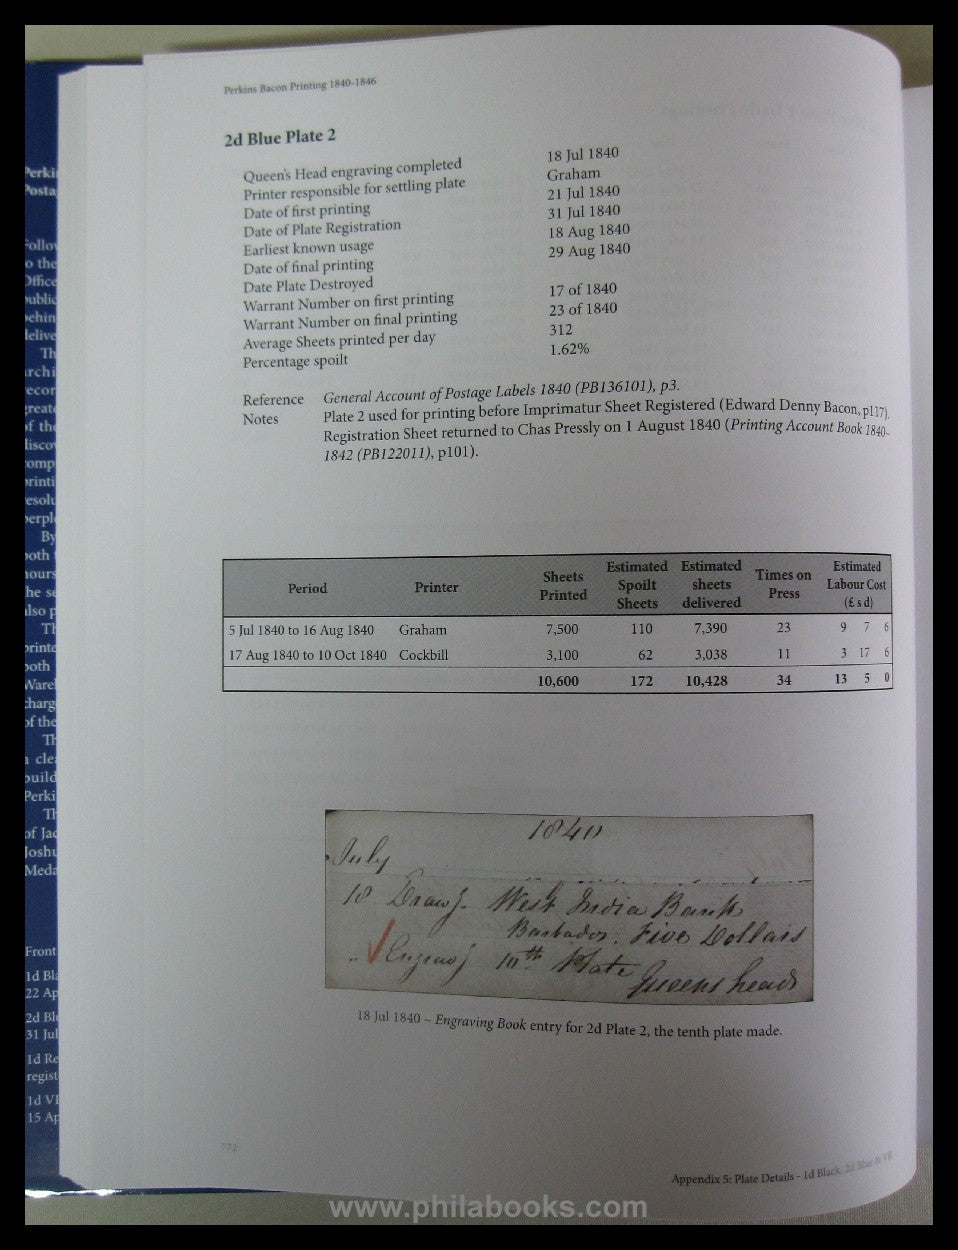 Perkins Bacon Printing 1840-1846
2d Blue Plate 2
Queen's Head engraving completed 18 Jul 1840
Printer responsible for settling plate Graham
Date of first printing 21 Jul 1840
Date of Plate Registration 31 Jul 1840
Earliest known usage 18 Aug 1840
Date of final printing 29 Aug 1840
Date Plate Destroyed
Warrant Number on first printing 17 of 1840
Warrant Number on final printing 23 of 1840
Average Sheets printed per day 312
Percentage spoilt 1.62%
Reference General Account of Postage Labels 1840 (PB136101), p3.
Notes Plate 2 used for printing before Imprimatur Sheet Registered (Edward Denny Bacon, p117).
Registration Sheet returned to Chas Pressly on 1 August 1840 (Printing Account Book 1840-
1842 (PB122011), p101).
Period Printer Sheets Printed Estimated Spoilt Sheets Estimated sheets delivered Times on Press Estimated Labour Cost (£ s d)
5 Jul 1840 to 16 Aug 1840 Graham 7,500 110 7,390 23 9 7 6
17 Aug 1840 to 10 Oct 1840 Cockbill 3,100 62 3,038 11 3 17 6
10,600 172 10,428 34 13 5 0
1840
July
18 Drawg. West India Bank
Barbados. Five Dollars
" Engravg 10th Plate Queens heads
18 Jul 1840 – Engraving Book entry for 2d Plate 2, the tenth plate made.
772
Appendix 5: Plate Details - 1d Black, 2d Blue & VR
Perki
Posta
Follow
o the
Office
public
behin
delive
Th
archi
recor
great
of the
disco
comp
printi
resolu
perple
By
both
hours
he se
also p
Th
printe
both
Ware
charg
of the
Th
a clea
build
Perki
Th
of Jac
Joshu
Meda
Front
1d Bla
22 Ap
2d Blu
31 Jul
1d Re
regist
1d VR
15 Ap
www.philabooks.com